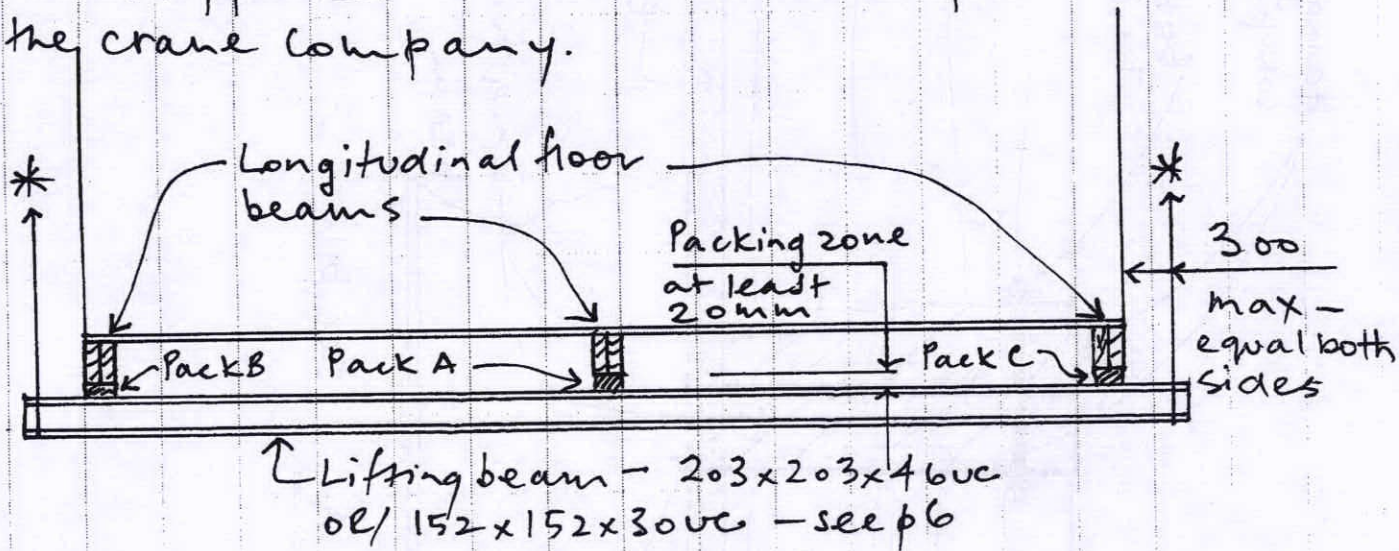 the crane company.
*
Longitudinal floor
beams
*
Packing zone
at least
20mm
300
max -
equal both
sides
Pack B
Pack A
Pack C
Lifting beam - 203x203x46uc
or/ 152x152x30uc - see p6